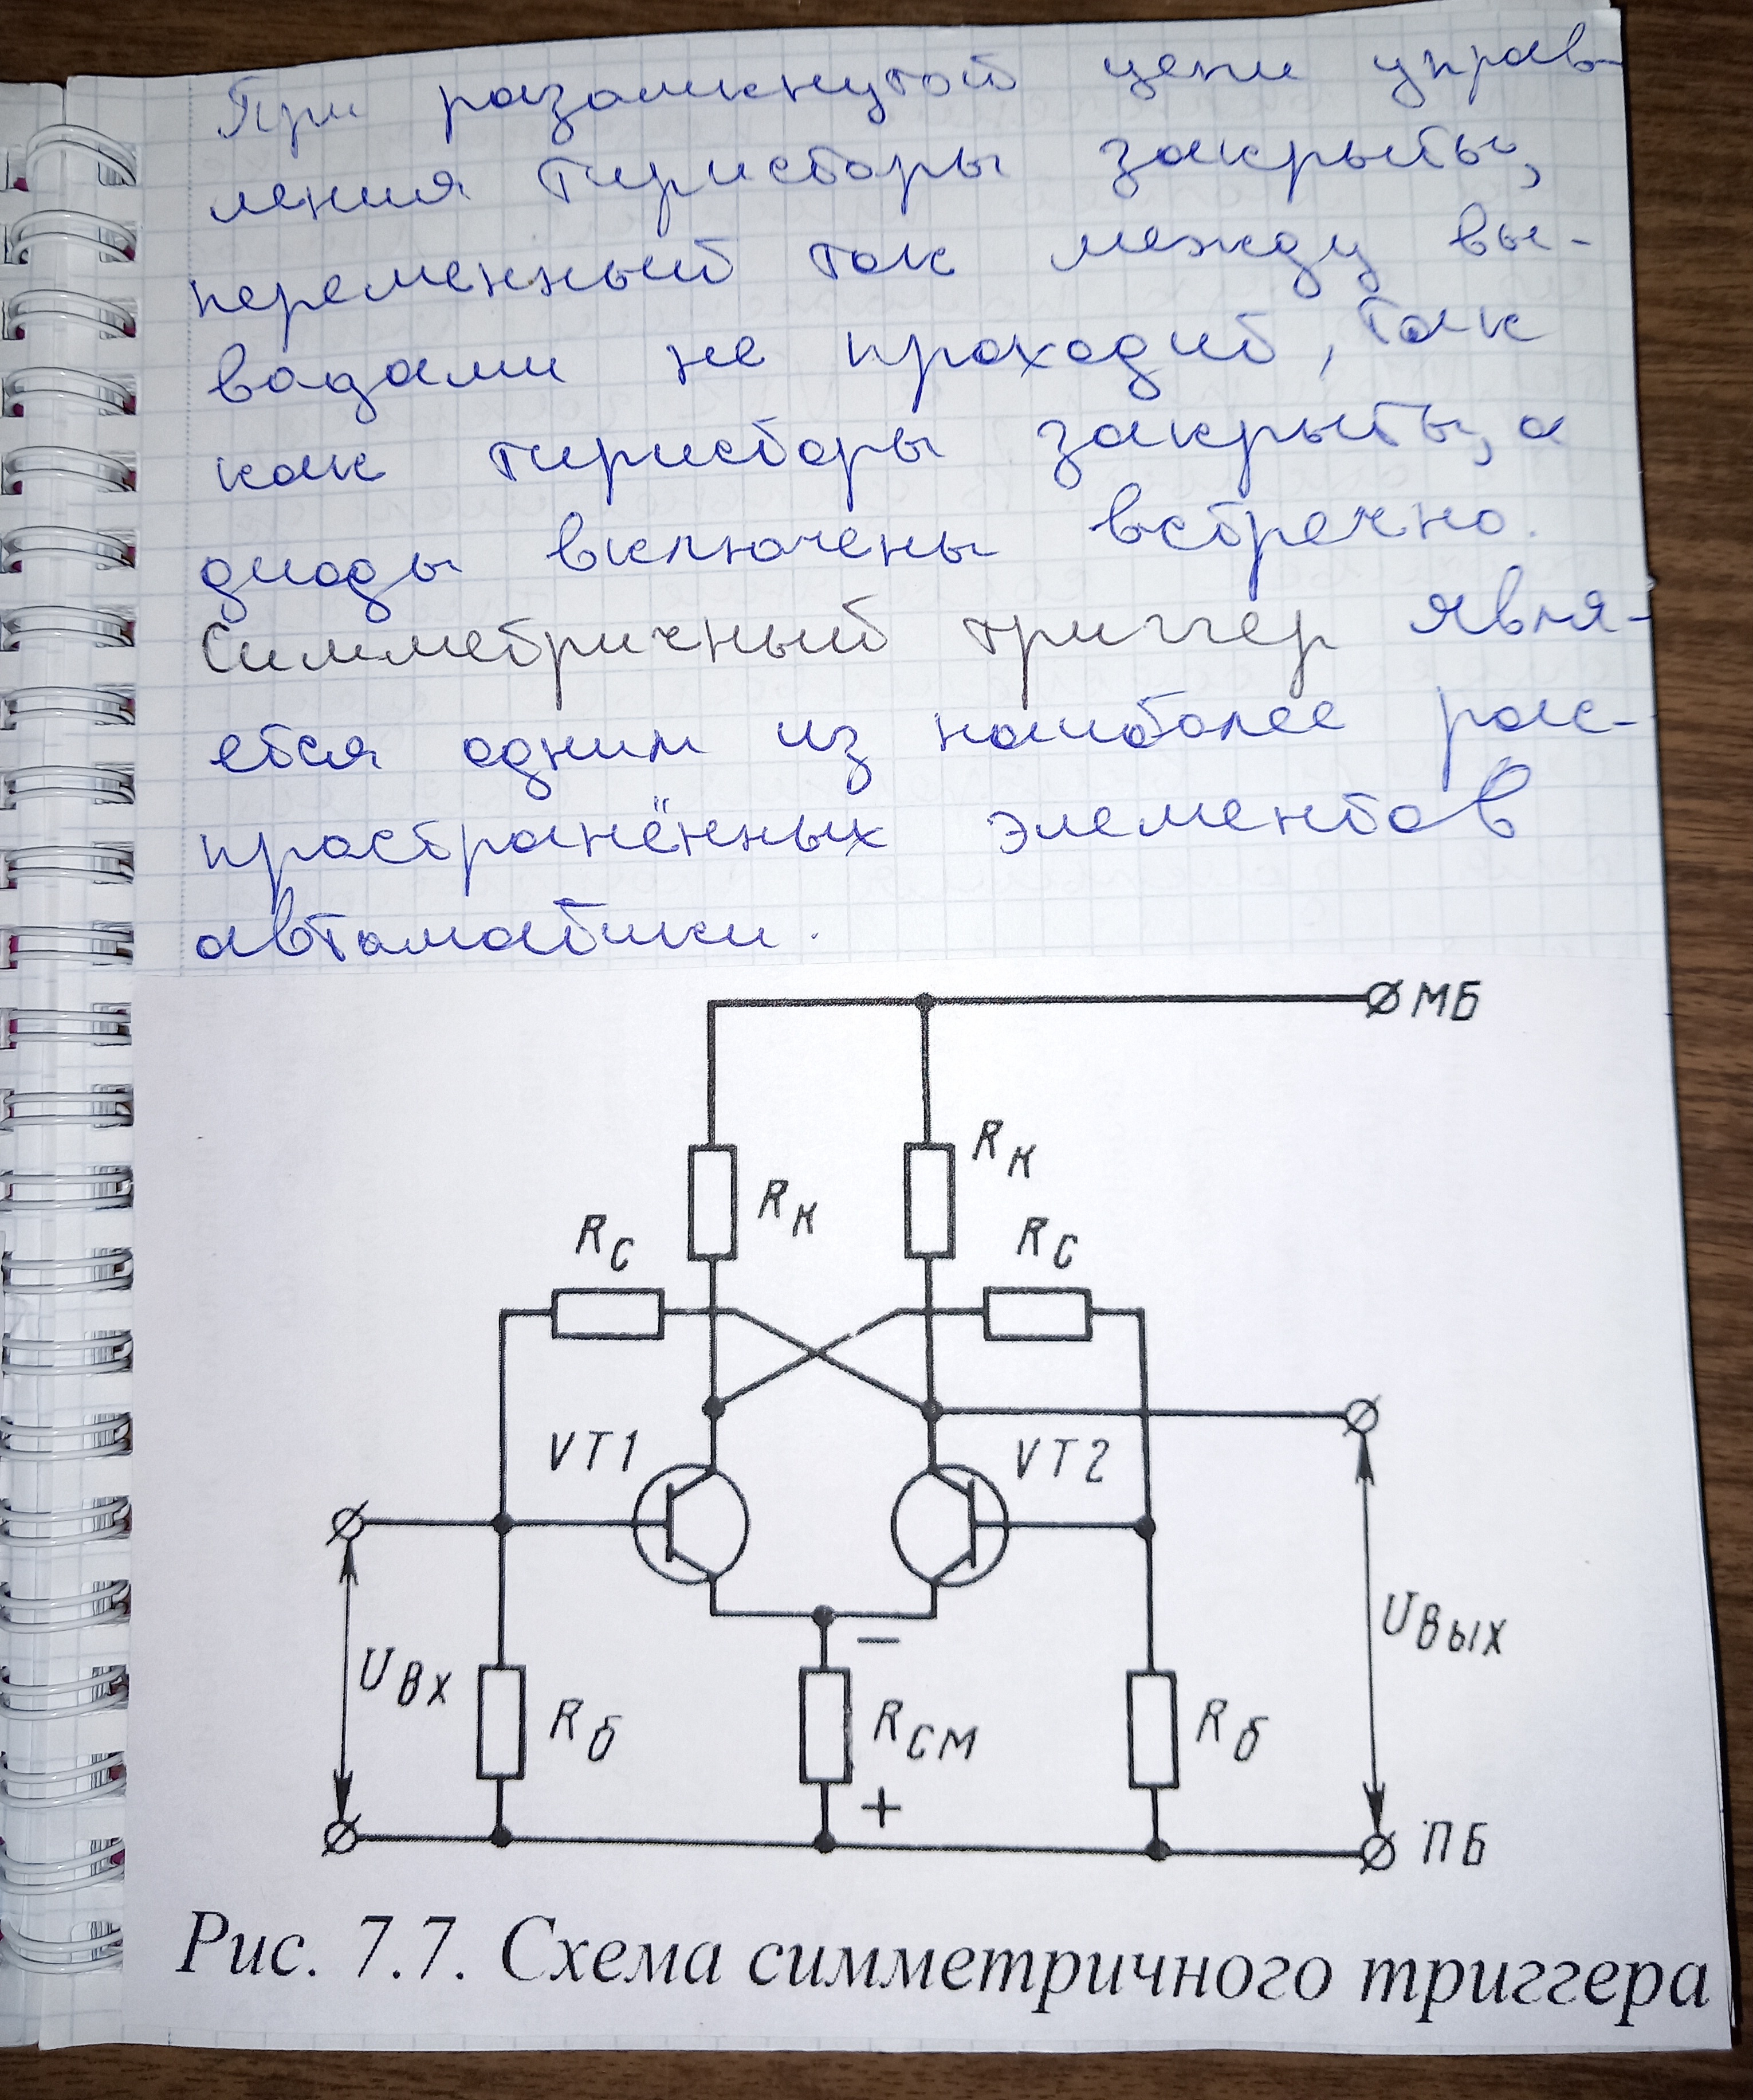 При разомкнутой цепи управ-
ления тиристоры закрыты,
переменный ток между вы-
водами не проходит, так
как тиристоры закрыты, а
диоды включены встречно.
Симметричный триггер явля-
ется одним из наиболее рас-
пространённых элементов
автоматики.
МБ
Rк
Rк
Rс
Rс
VT1
VT2
Uвх
Rб
−
Rсм
+
Rб
Uвых
ПБ
Рис. 7.7. Схема симметричного триггера